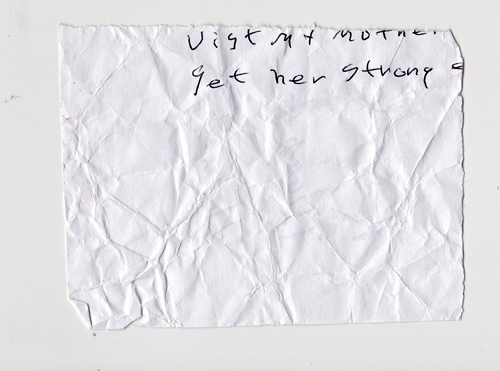 Vist my mother
get her strong